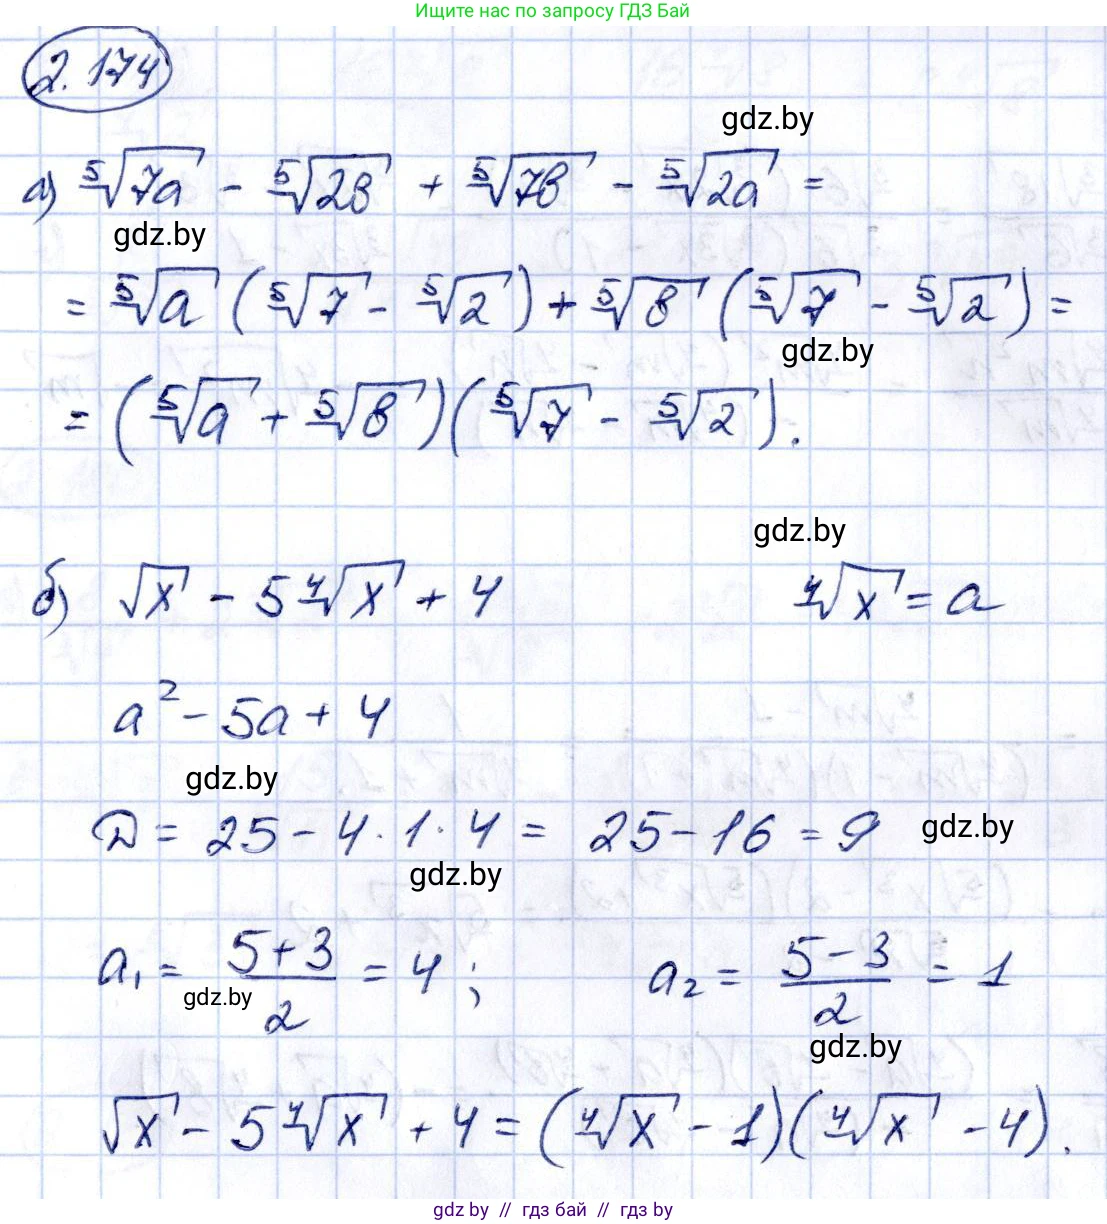 Ищите нас по запросу ГДЗ Бай
2.174
gdz.by
а) ⁵√7a - ⁵√2b + ⁵√7b - ⁵√2a =
gdz.by
= ⁵√a (⁵√7 - ⁵√2) + ⁵√b (⁵√7 - ⁵√2) =
gdz.by
= (⁵√a + ⁵√b)(⁵√7 - ⁵√2).
gdz.by
б) √x - 5 ⁴√x + 4 ⁴√x = a
a² - 5a + 4
gdz.by
D = 25 - 4 · 1 · 4 = 25 - 16 = 9 gdz.by
gdz.by
a₁ = (5+3)/2 = 4 ; a₂ = (5-3)/2 = 1
gdz.by
gdz.by
√x - 5 ⁴√x + 4 = (⁴√x - 1)(⁴√x - 4).
gdz.by // гдз бай // гдз by